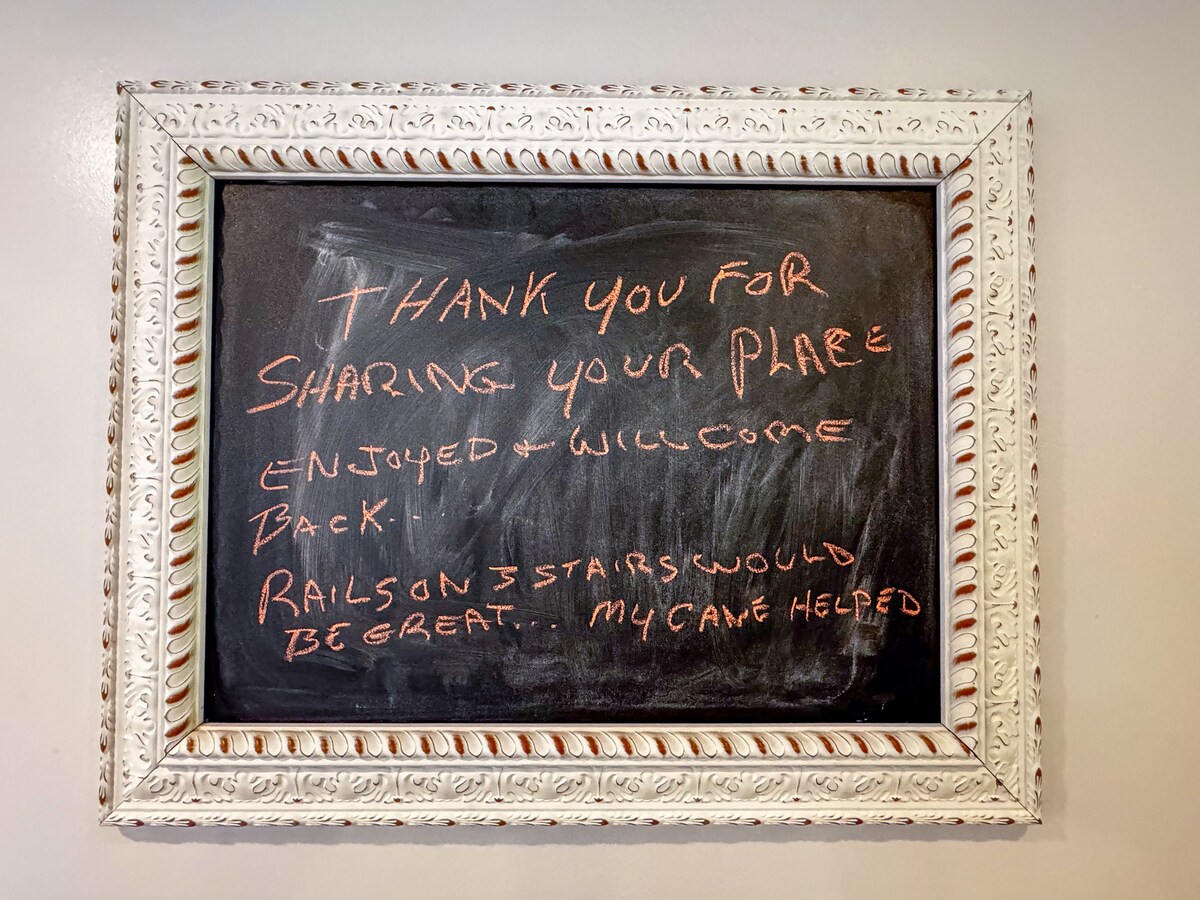 THANK YOU FOR
SHARING YOUR PLACE
ENJOYED & WILL COME
BACK..
RAILS ON 3 STAIRS WOULD
BE GREAT... MY CANE HELPED